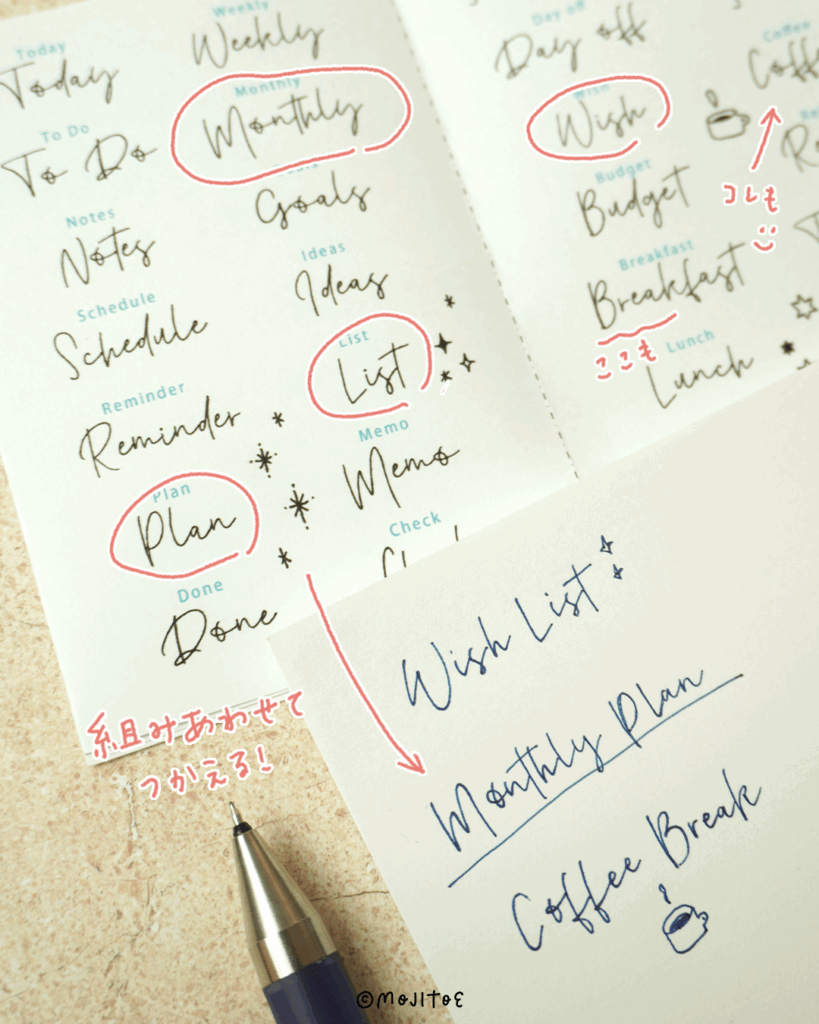 Today
Today
Weekly
Weekly
To Do
To Do
Monthly
Monthly
Notes
Notes
Goals
Schedule
Schedule
Ideas
Ideas
Reminder
Reminder
List
List
Plan
Plan
Memo
Memo
Done
Done
Check
Day off
Day off
Coffee
Wish
Wish
Budget
Budget
Breakfast
Breakfast
Lunch
Lunch
コレも
ここも
組みあわせて
つかえる!
Wish List
Monthly Plan
Coffee Break
©MOJITOE